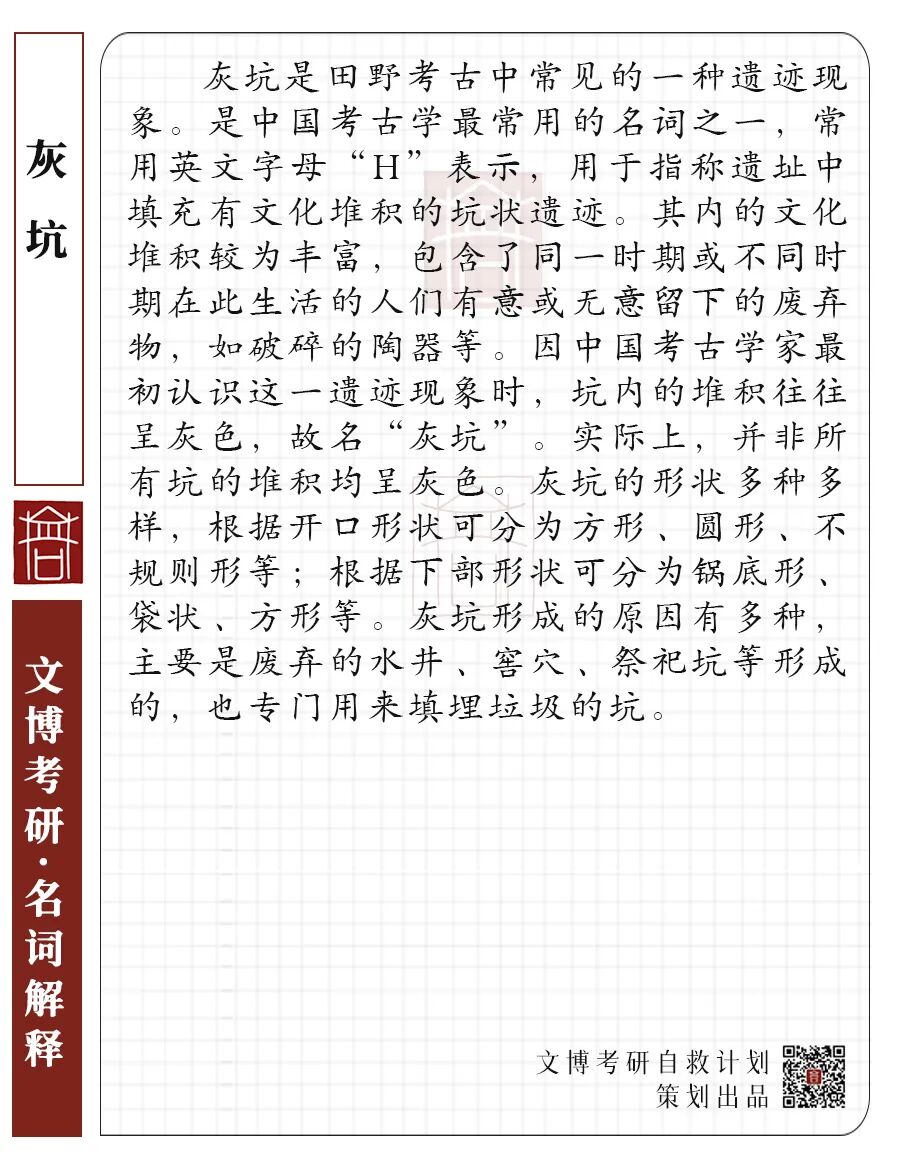 灰坑
文博考研·名词解释
灰坑是田野考古中常见的一种遗迹现
象。是中国考古学最常用的名词之一，常
用英文字母“H”表示，用于指称遗址中
填充有文化堆积的坑状遗迹。其内的文化
堆积较为丰富，包含了同一时期或不同时
期在此生活的人们有意或无意留下的废弃
物，如破碎的陶器等。因中国考古学家最
初认识这一遗迹现象时，坑内的堆积往往
呈灰色，故名“灰坑”。实际上，并非所
有坑的堆积均呈灰色。灰坑的形状多种多
样，根据开口形状可分为方形、圆形、不
规则形等；根据下部形状可分为锅底形、
袋状、方形等。灰坑形成的原因有多种，
主要是废弃的水井、窖穴、祭祀坑等形成
的，也专门用来填埋垃圾的坑。
文博考研自救计划
策划出品